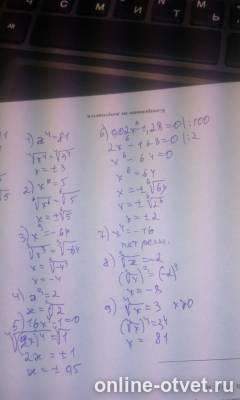 1) x⁴=81
⁴√x⁴=⁴√3⁴
x=±3
2) x⁶=5
⁶√x⁶=⁶√5
x=±⁶√5
3) x³=-64
³√x³=³√-64
x=³√-4³
x=-4
4) x³=2
x=³√2
5) 16x⁴-1=0
⁴√(2x)⁴=⁴√1
2x=±1
x=±0,5
6) 0,02x⁶-1,28=0 | ·100
2x⁶-128=0 | :2
x⁶-64=0
x⁶=64
x=±⁶√64
x=±⁶√2⁶
x=±2
7) x⁴=-16
нет реш.
8) ³√x=-2
(³√x)³=(-2)³
x=-8
9) ⁴√x=3 x≥0
(⁴√x)⁴=3⁴
x=81
online-otvet.ru